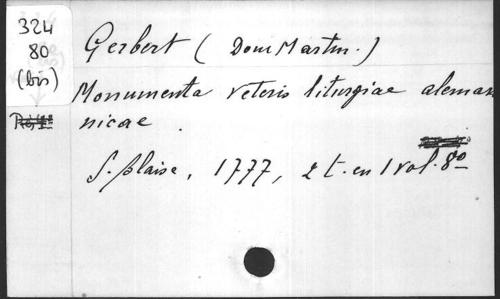 324
80
(bis)
Gerbert (Dom Martin.)
Monumenta veteris liturgiae aleman
nicae
S. Blaise, 1777, 2 t. en 1 vol. 8º